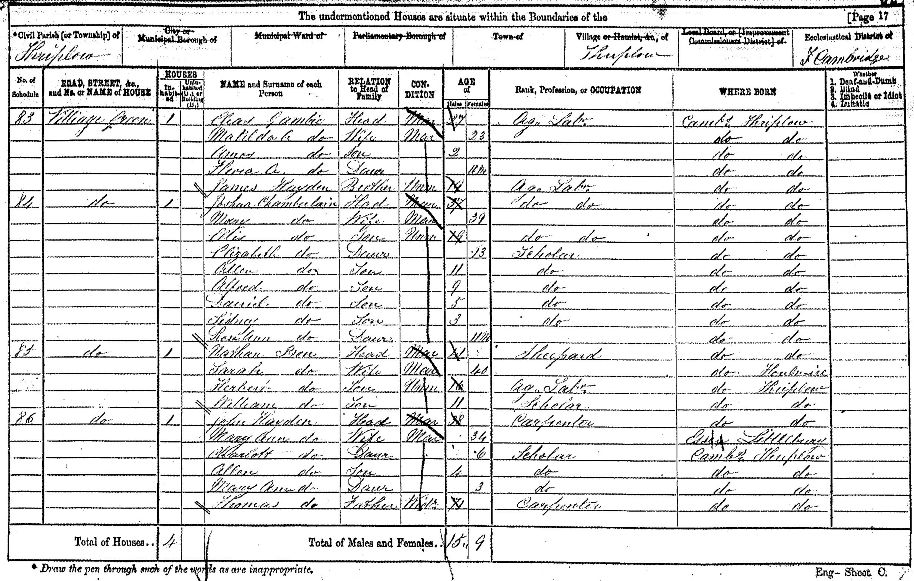 The undermentioned Houses are situate within the Boundaries of the [Page 17
*Civil Parish [or Township] of City or Municipal Borough of Municipal Ward of Parliamentary Borough of Town of Village or Hamlet, &c., of Local Board, or [Improvement Commissioners District] of Ecclesiastical District of
Thriplow Thriplow Cambridge
No. of Schedule ROAD, STREET, &c., and No. or NAME of HOUSE HOUSES In-habit-ed Unin-habited (U.), or Building (B.) NAME and Surname of each Person RELATION to Head of Family CON-DITION AGE of Males Females Rank, Profession, or OCCUPATION WHERE BORN Whether 1. Deaf-and-Dumb 2. Blind 3. Imbecile or Idiot 4. Lunatic
83 Village Green 1 Chas Head Mar 27 Ag. Labr Camb Thriplow
Matilda do Wife Mar 23 do do
Amos do Son 2 do do
do Daur do do
James Hayden Brother Unm Ag. Labr do do
84 do 1 Joshua Chamberlain Head Mar 37 do do do do
Mary do Wife Mar 39 do do
do Son Unm do do do do
Elizabeth do Daur 13 Scholar do do
Allen do Son 11 do do do
Alfred do Son 9 do do do
Daniel do Son 5 do do do
Sidney do Son 3 do do do
do Daur do do
85 do 1 Nathan Head Mar 41 Shepard do do
Sarah do Wife Mar 40 do
Herbert do Son Unm Ag. Labr do Thriplow
William do Son 11 Scholar do do
86 do 1 John Hayden Head Mar Carpenter do do
Mary Ann do Wife Mar 34 Littlebury
do Daur 6 Scholar Camb Thriplow
do Son 4 do do do
Mary Ann d Daur 3 do do do
Thomas do Father Widr Carpenter do do
Total of Houses.. 4 Total of Males and Females.. 15 9
* Draw the pen through such of the words as are inappropriate. Eng- Sheet C.